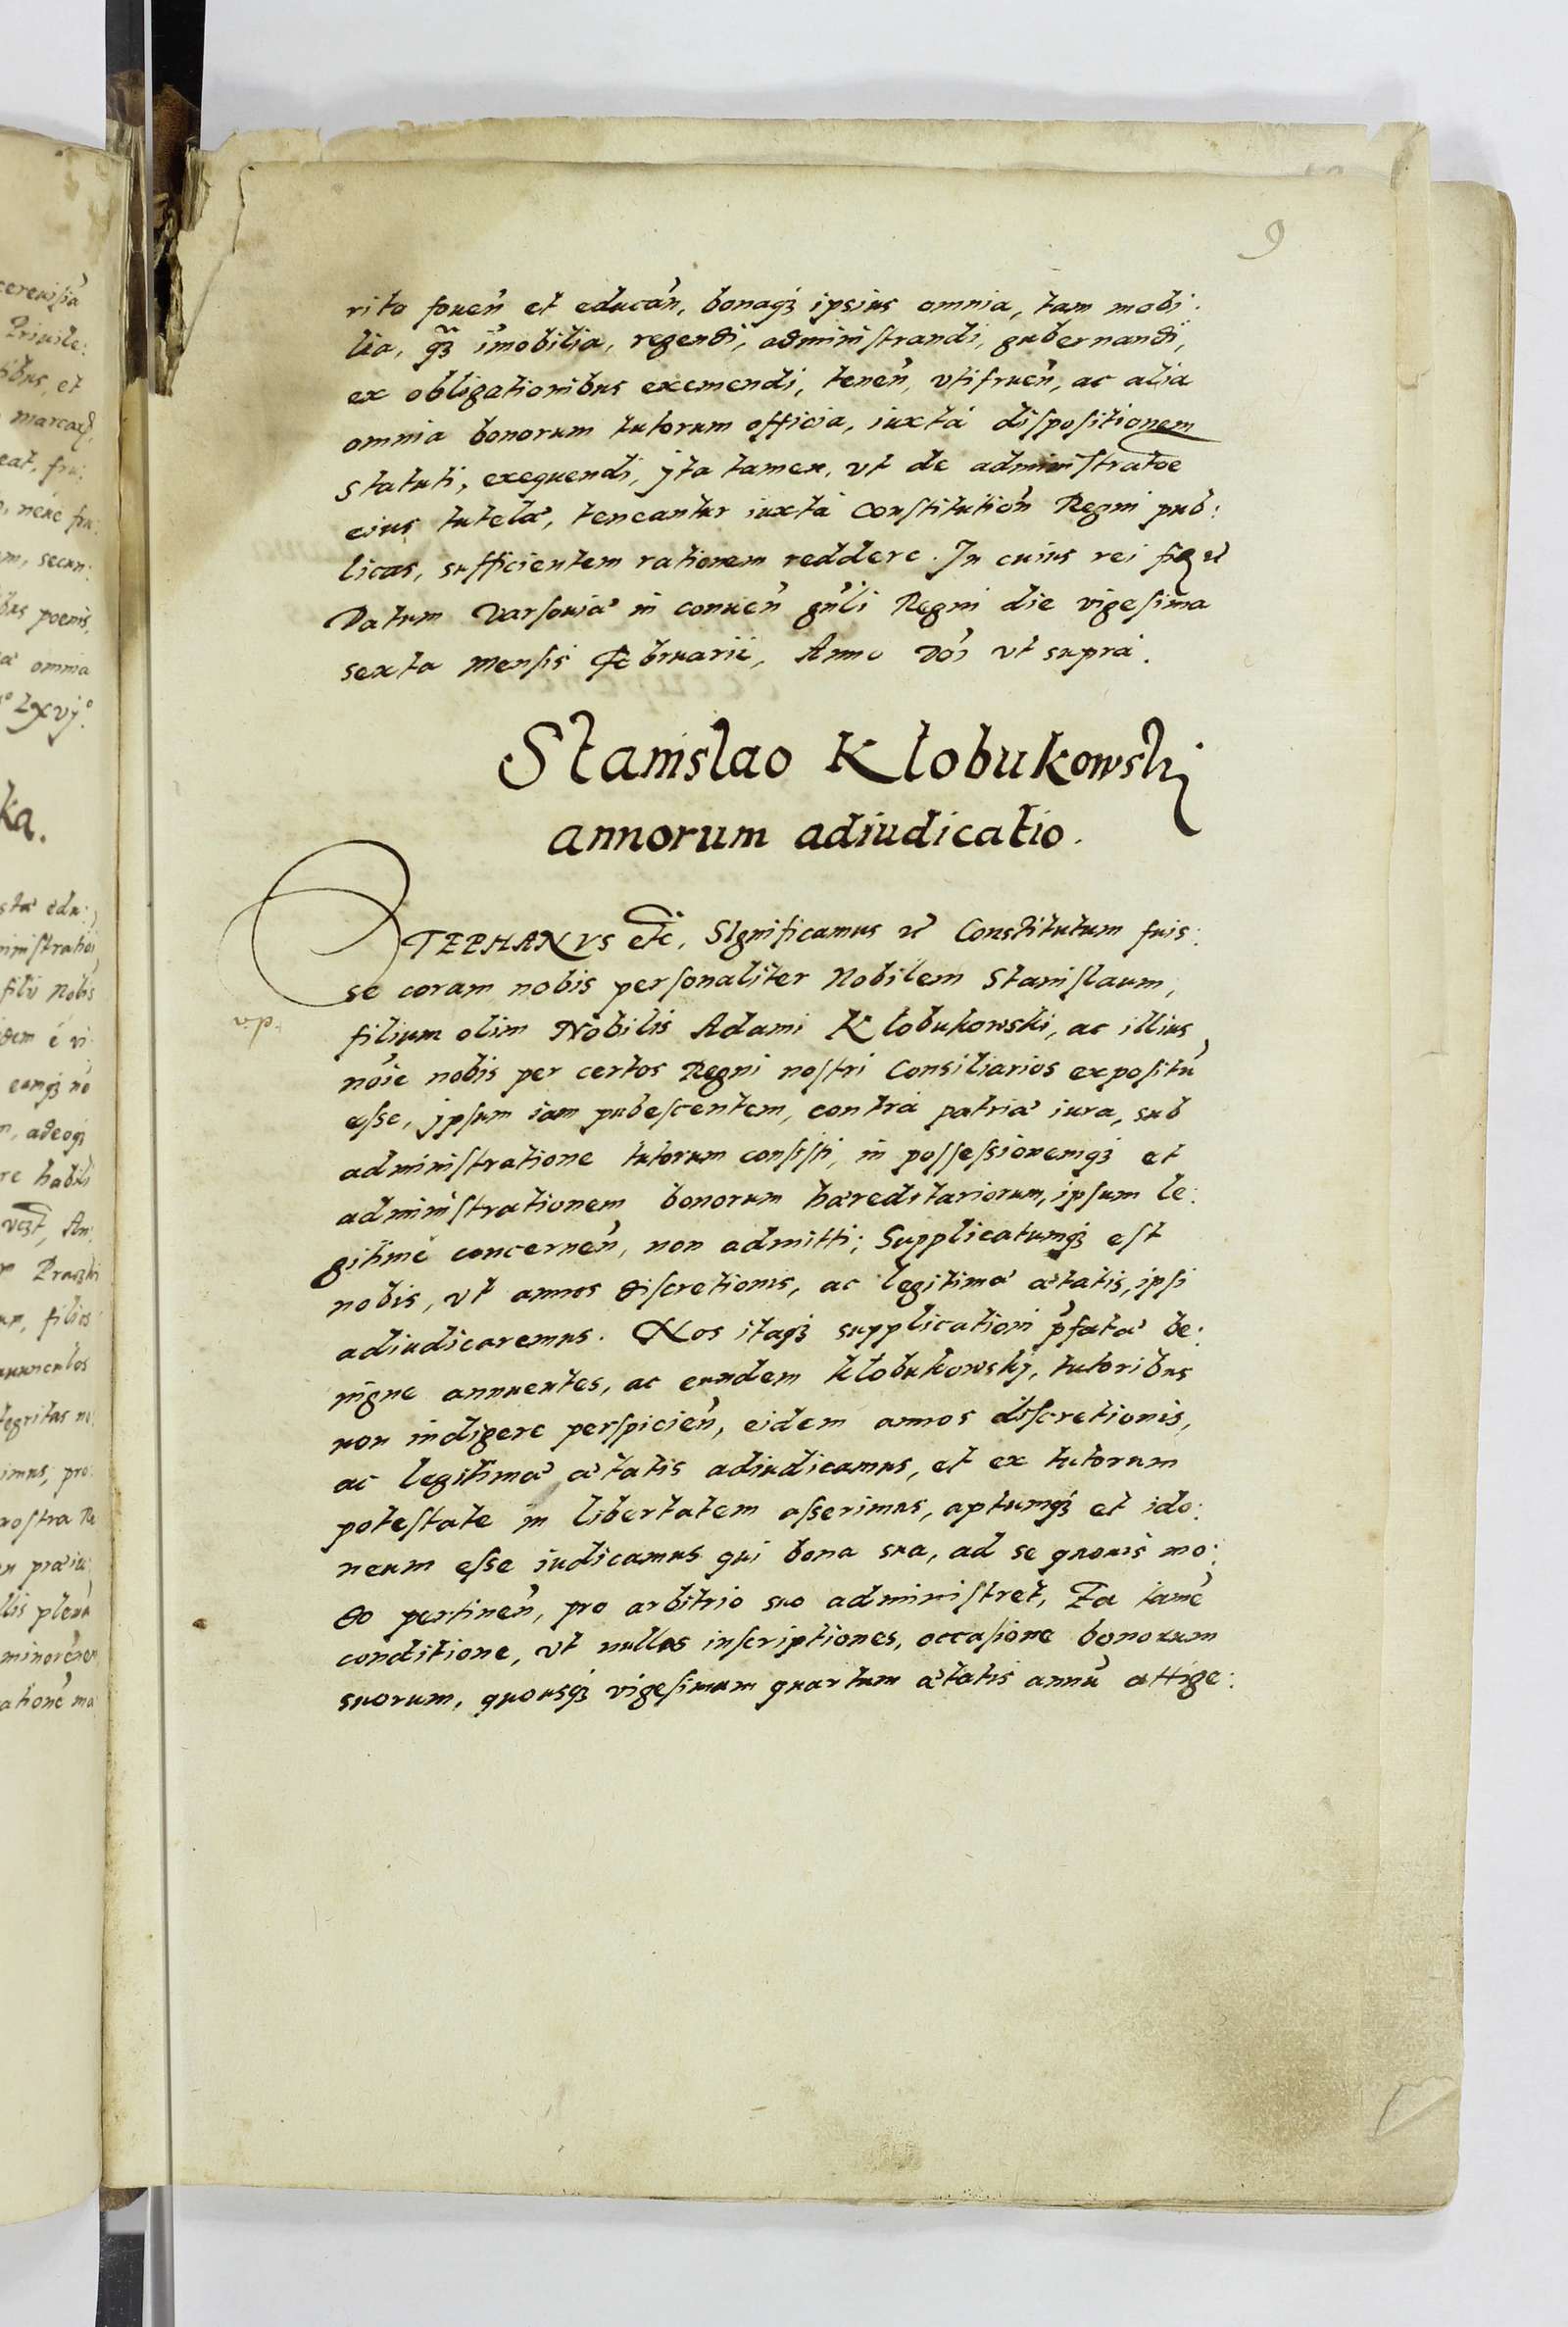 9
rito fouen̄ et educan̄, bonaqȝ ipsius omnia, tam mobi:
lia, qȝ im̄obilia, regendi, administrandi, gubernandi,
ex obligationibus exemendi, tenen̄, vtifruen̄, ac alia
omnia bonorum tutorum officia, iuxtà dispositionem
statuti, exequendi, jta tamen, vt de administratōe
eius tutelæ, teneantur iuxtà Constitution̄ Regni pub:
licas, sufficientem rationem reddere. In cuius rei
Datum Varsouiæ in conuen̄ gn̄li Regni die vigesima
sexta mensis Februarii, Anno Dōi vt suprà.
Stanislao Klobukowskj
annorum adiudicatio.
STEPHANVS etc. SIgnificamus Constitutum fuis:
se coram nobis personaliter Nobilem Stanislaum,
filium olim Nobilis Adami Klobukowski, ac illius
nōie nobis per certos Regni nostri Consiliarios expositū
esse, jpsum iam pubescentem, contrà patria iura, sub
administratione tutorum consisti, in possessionemqȝ et
administrationem bonorum hæreditariorum, ipsum le:
gitimè concernen̄, non admitti; Supplicatumqȝ est
nobis, vt annos discretionis, ac legitimæ ætatis, ipsi
adiudicaremus. Nos itaqȝ supplicationi p̄fatæ be:
nigne annuentes, ac eundem Klobukowskj, tutoribus
non indigere perspicien̄, eidem annos discretionis,
ac legitimæ ætatis adiudicamus, et ex tutorum
potestate in libertatem asserimus, aptumqȝ et ido:
neum esse iudicamus qui bona sua, ad se quouis mo:
do pertinen̄, pro arbitrio suo administret, Ea tamē
conditione, vt nullas inscriptiones, occasione bonorum
suorum, quousqȝ vigesimum quartum ætatis annū attige: